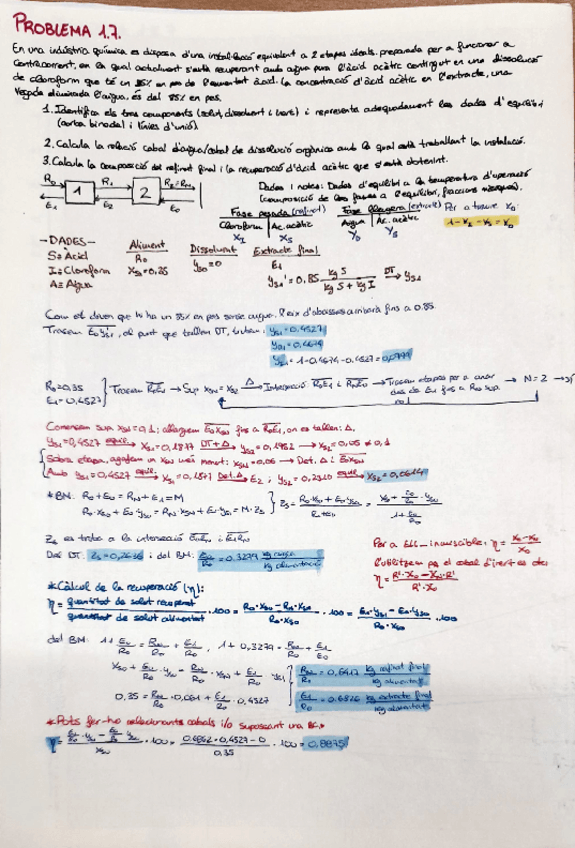 PROBLEMA 1.7.
En una indústria química es disposa d'una instal·lació equivalent a 2 etapes ideals, preparada per a funcionar a
contracorrent, en la qual actualment s'està recuperant amb aigua pura l'àcid acètic contingut en una dissolució
de cloroform que té un 35% en pes de l'esmentat àcid. La concentració d'àcid acètic en l'extracte, una
vegada eliminada l'aigua, és del 85% en pes.
1. Identifica els tres components (solut, dissolvent i inert) i representa adequadament les dades d'equilibri
(corba binodal i línies d'unió).
2. Calcula la relació cabal d'aigua/cabal de dissolució orgànica amb la qual està treballant la instal·lació.
3. Calcula la composició del refinat final i la recuperació d'àcid acètic que s'està obtenint.
R0 1 R1 2 R2=RN
E1 E2 E0
Dades i notes: Dades d'equilibri a la temperatura d'operació
(composició de les fases a l'equilibri, fraccions màssiques).
Fase pesada (refinat) Fase lleugera (extracte) Per a traure YD:
Cloroform Ac. acètic Aigua Ac. acètic
XI XS YD YS
1-YI-YS=YD
-DADES- Aliment Dissolvent Extracte final
S: Àcid R0 yS0=0 E1
I: Cloroform XS0=0,35 yS1' = 0,85 kg S / kg S + kg I DT → yS1
A: Aigua
Com el diuen que hi ha un 85% en pes sense aigua, l'eix d'abscisses arribarà fins a 0.85.
Tracem E0yS1', el punt que tallen DT, trobem: yS1=0,4527
yD1=0,4674
yI1=1-0.4674-0.4527=0,0799
R0=0.35
E1=0.4527
Tracem R0E1 → Sup XSN=XS2 → Δ Intersecció R0E1 i RNE0 → Tracem etapes per a anar
des de E1 fins a RN sup. → N=2 → sí
no
Comencem sup XSN=0,1; allarguem E0XSN fins a R0E1, on es tallen: Δ.
yS1=0,4527 equil. XS1=0,1877 DT+Δ yS2=0,1982 → XS2=0,05 ≠ 0,1
Sobra etapa, agafem un XSN més menut: XSN=0,06 → Det. Δ i E0XSN
Amb yS1=0,4527 equil. XS1=0,1877 Det.Δ E2; yS2=0,2310 equil. XS2=0,0614
*BM: R0+E0=RN+E1=M
R0·XS0+E0·yS0=RN·XSN+E1·yS1=M·ZS
ZS = R0·XS0+E0·yS0 / R0+E0 = XS0+E0/R0·yS0 / 1+E0/R0
ZS es troba a la intersecció E1RN i E0R0
Del DT: ZS=0,2636 i del BM: E0/R0=0.3279 kg aigua / kg alimentació
Per a ELL immiscible: η = X0-XN / X0
l'utilitzem pq el cabal d'inert es cte:
η = R'·X0-XN·R' / R'·X0
*Càlcul de la recuperació (η):
η = quantitat de solut recuperat / quantitat de solut alimentat ·100 = R0·XS0-RN·XSN / R0·XS0 ·100 = E1·yS1-E0·yS0 / R0·XS0 ·100
del BM: 1+E0/R0=RN/R0+E1/R0, 1+0,3279=RN/R0+E1/R0
XS0+E0/R0·yS0=RN/R0·XSN+E1/R0·yS1
0.35=RN/R0·0.061+E1/R0·0.4527
RN/R0=0,6417 kg refinat final / kg alimentat
E1/R0=0.6826 kg extracte final / kg alimentat
*Pots fer-ho relacionant cabals i/o suposant una BC.
η = E1/R0·yS1-E0/R0·yS0 / XS0 ·100 = 0.6862·0,4527-0 / 0.35 ·100 = 0.8875